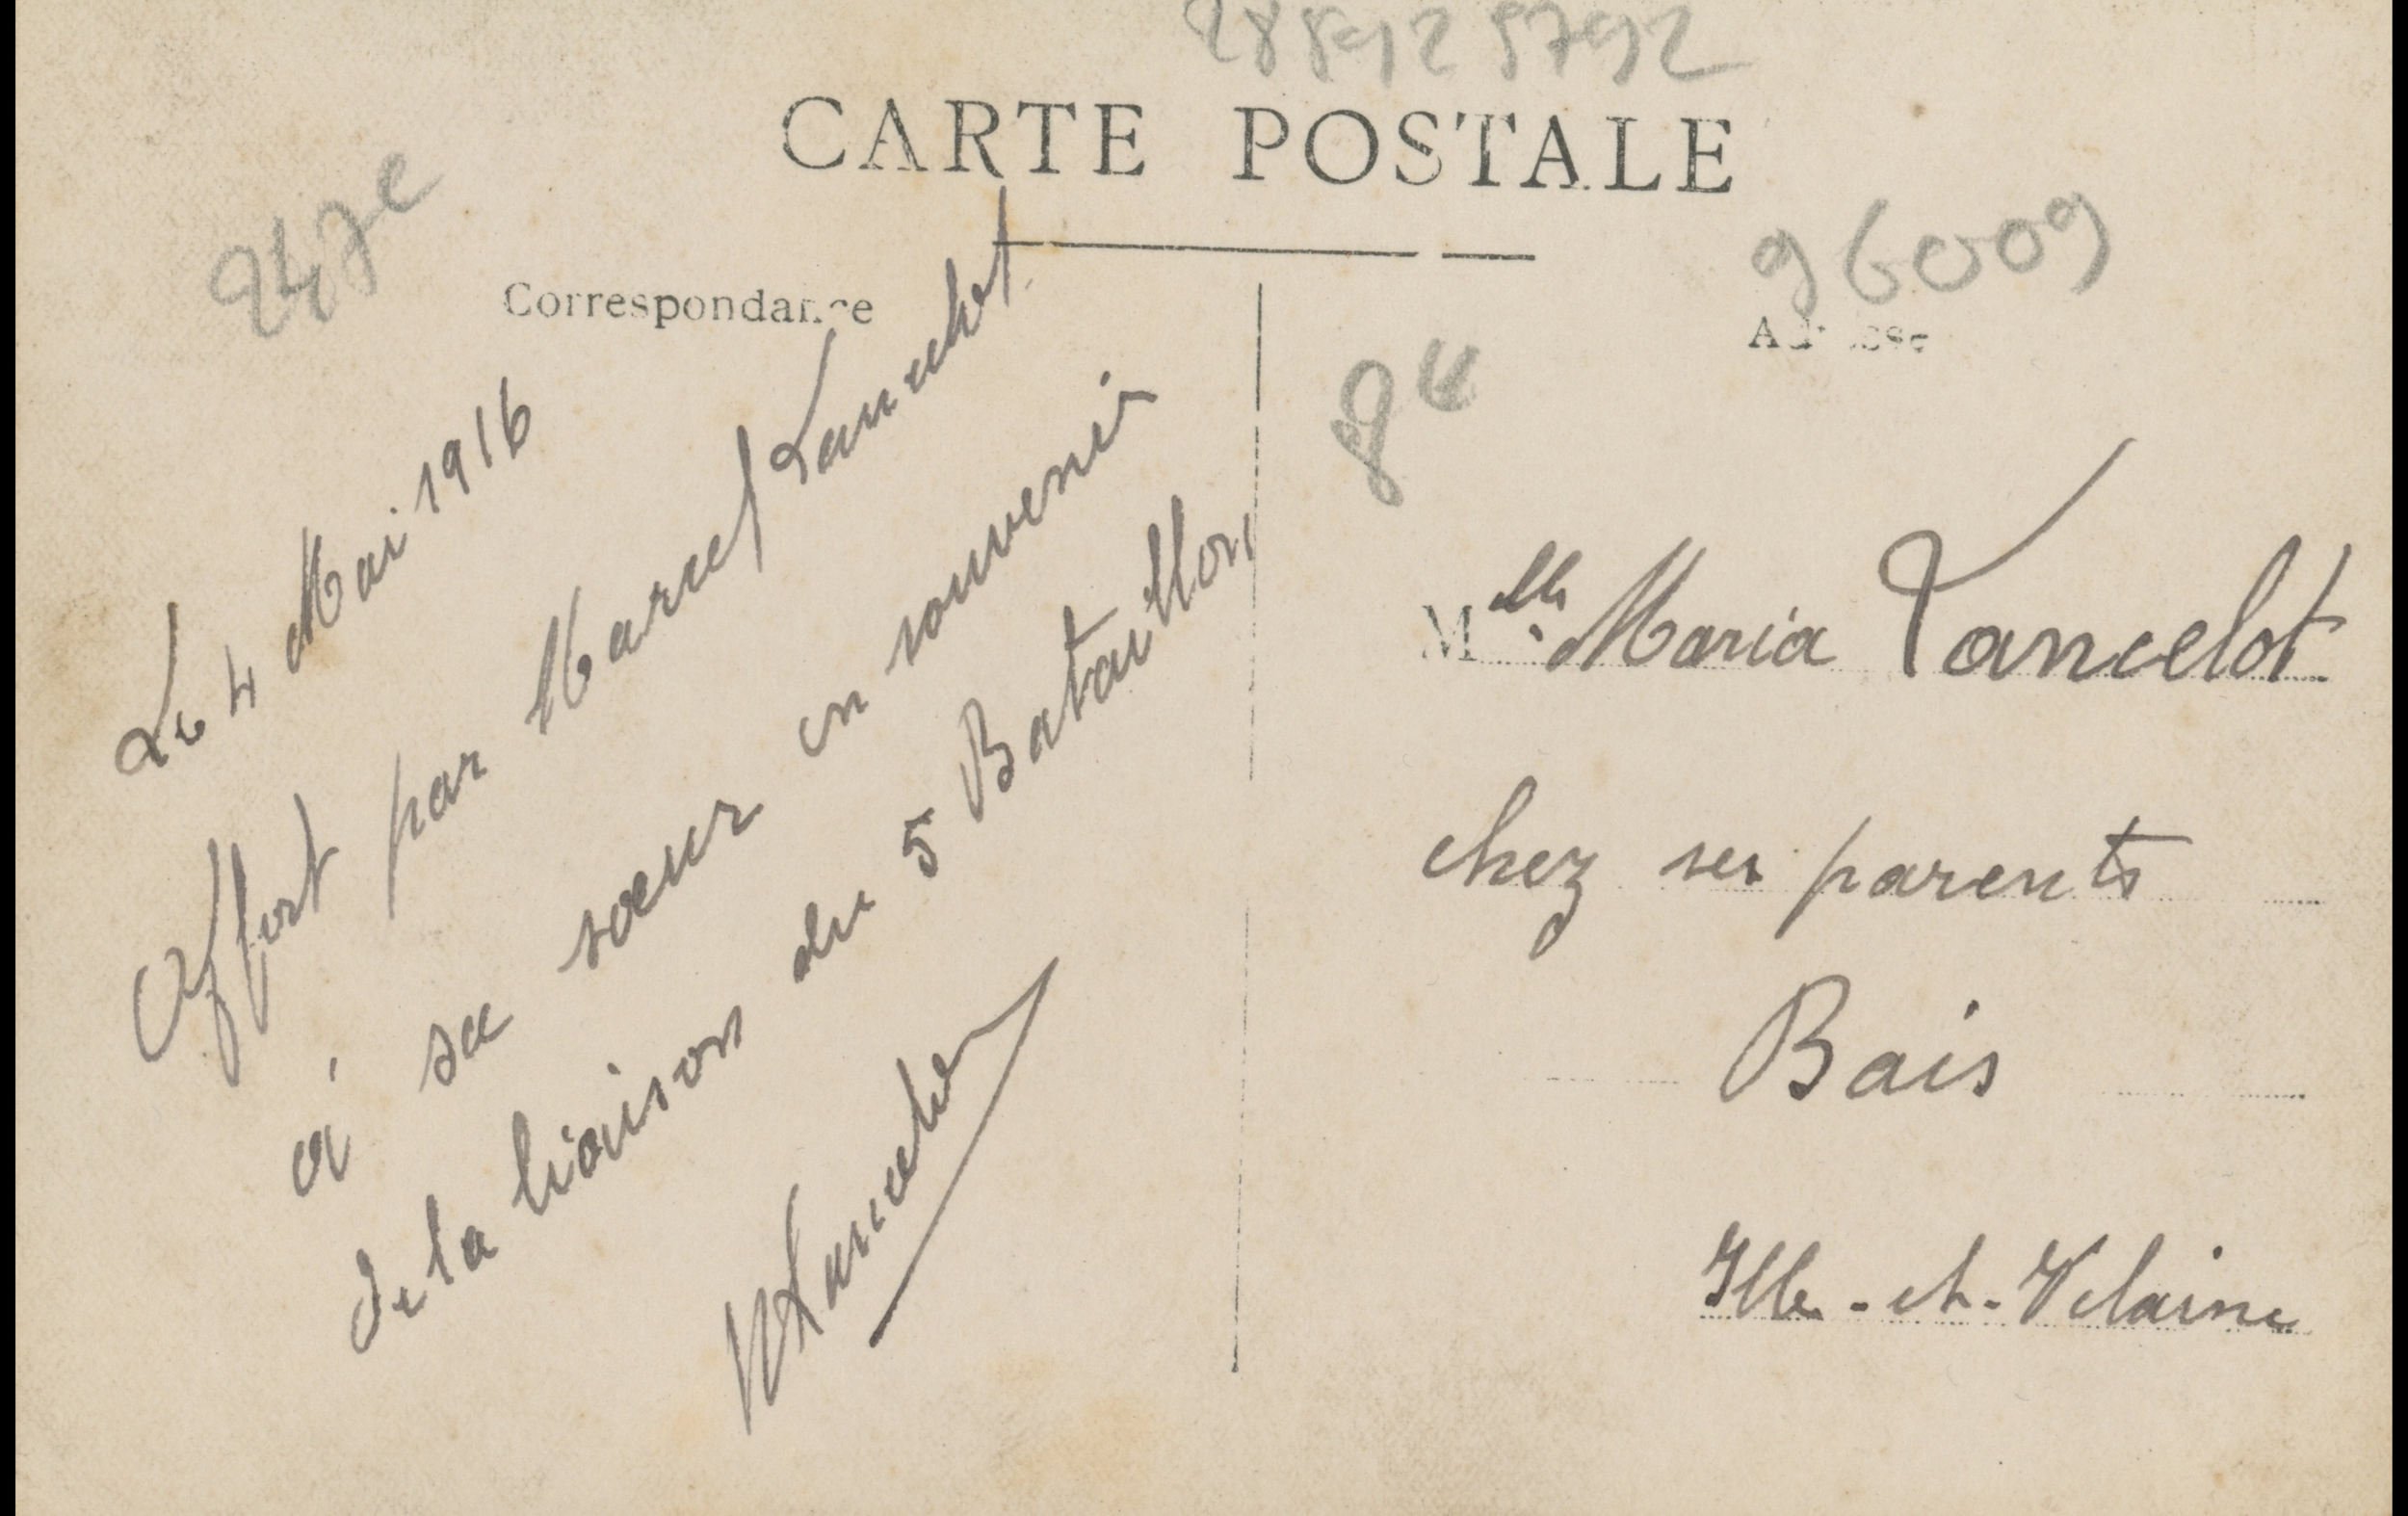 CARTE POSTALE
247e
Correspondance
Le 4 Mai 1916
Offert par Marcel Lancelot
à sa sœur en souvenir
de la liaison du 5 Bataillon
MLancelot
96009
Adresse
8€
Mlle Maria Lancelot
chez ses parents
Bais
Ille-et-Vilaine